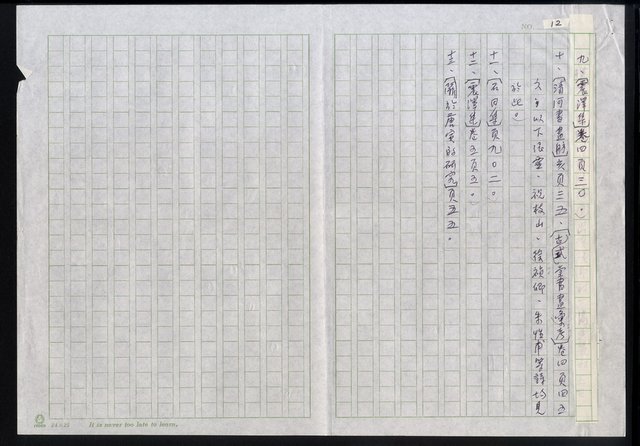 NO. 12
九、「震澤集」卷四頁三〇。
十、「清河書畫舫」亥頁三五、「式古堂書畫彙考」卷四頁四五
文壁以下張靈、祝枝山、徐禎卿、朱性甫等詩均見
於此。
十一、「石田集」頁九〇二。
十二、「震澤集」卷五頁五。
十三、「關於唐寅的研究」頁五五。
24×25 It is never too late to learn.